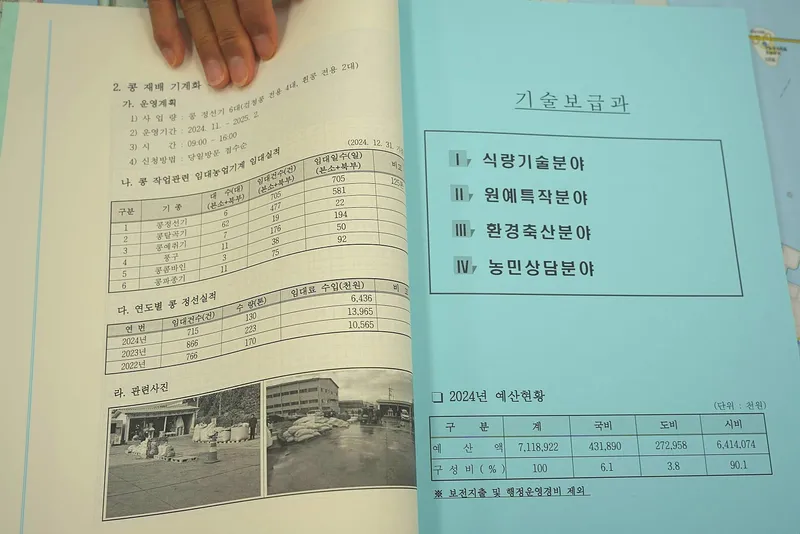 2. 콩 재배 기계화
가. 운영계획
1) 사 업 량 : 콩 정선기 6대(검정콩 전용 4대, 흰콩 전용 2대)
2) 운영기간 : 2024. 11. - 2025. 2.
3) 시 간 : 09:00 - 16:00
4) 신청방법 : 당일방문 접수순
나. 콩 작업관련 임대농업기계 임대실적
(2024. 12. 31.
구분 기 종 대 수(대) (본소+북부) 임대건수(건) (본소+북부) 임대일수(일) (본소+북부) 비고
1 콩정선기 6 705 705
2 콩탈곡기 62 477 581
3 콩예취기 7 19 22
4 콩구 11 176 194
5 콩콤바인 3 38 50
6 콩파종기 11 75 92
다. 연도별 콩 정선실적
연 번 임대건수(건) 수 량(톤) 임대료 수입(천원) 비고
2024년 715 130 6,436
2023년 866 223 13,965
2022년 766 170 10,565
라. 관련사진
기술보급과
Ⅰ 식량기술분야
Ⅱ 원예특작분야
Ⅲ 환경축산분야
Ⅳ 농민상담분야
❏ 2024년 예산현황
(단위 : 천원)
구 분 계 국비 도비 시비
예 산 액 7,118,922 431,890 272,958 6,414,074
구성비(%) 100 6.1 3.8 90.1
※ 보전지출 및 행정운영경비 제외